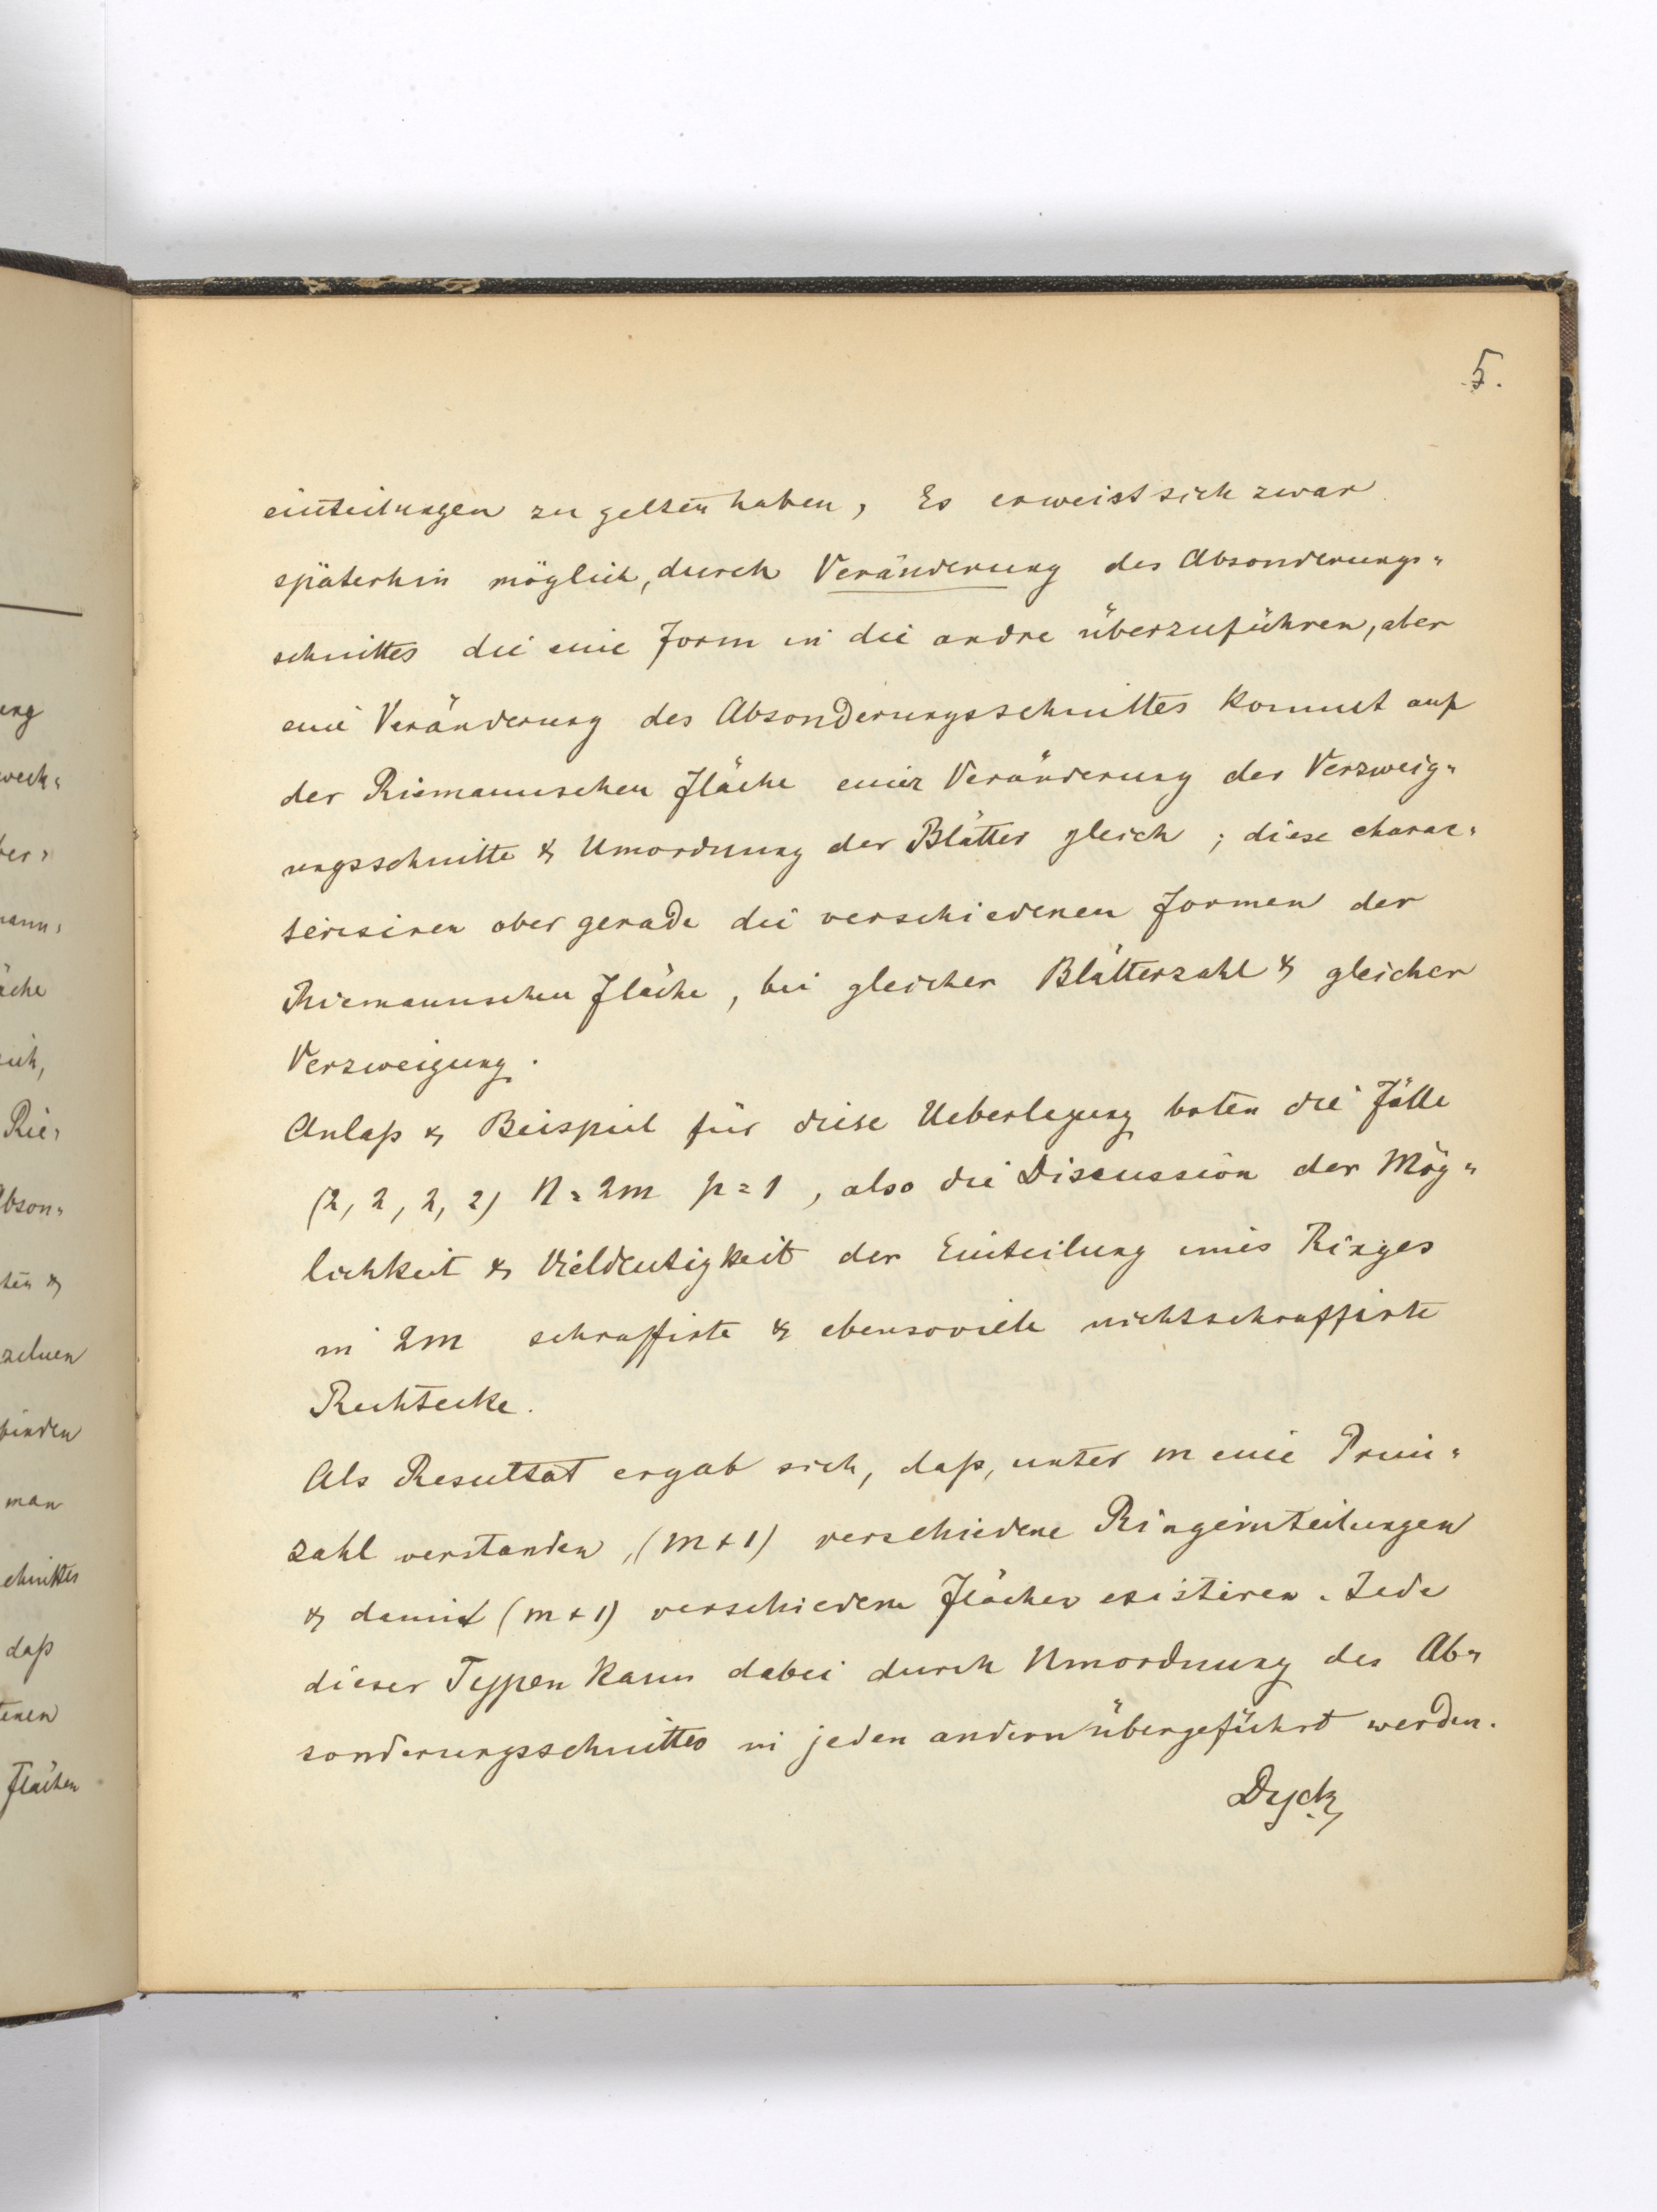 5.
einteilungen zu gelten haben, Es erweist sich zwar
späterhin möglich, durch Veränderung des Absonderungs=
schnittes die eine Form in die andre überzuführen, aber
eine Veränderung des Absonderungsschnittes kommt auf
der Riemannschen Fläche einer Veränderung der Verzweig=
ungsschnitte & Umordnung der Blätter gleich; diese charac=
terisiren aber gerade die verschiedenen Formen der
Riemannschen Fläche, bei gleicher Blätterzahl & gleicher
Verzweigung.
Anlaß & Beispiel für diese Ueberlegung boten die Fälle
(2, 2, 2, 2) N = 2m p = 1, also die Discussion der Mög=
lichkeit & Vieldeutigkeit der Einteilung eines Ringes
in 2m schraffirte & ebensoviele nichtschraffirte
Rechtecke.
Als Resultat ergab sich, daß, unter m eine Prim=
zahl verstanden, (m+1) verschiedene Ringeinteilungen
& damit (m+1) verschiedene Flächen existiren. Jede
dieser Typen kann dabei durch Umordnung des Ab=
sonderungsschnittes in jeden andern übergeführt werden.
Dyck
ung
äche
Rie=
Abson=
ten &
zelnen
finden
man
chnittes
daß
Flächen